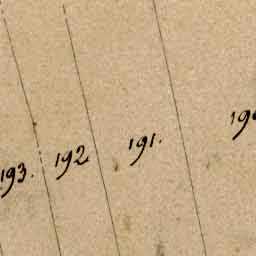 193. 192 191.